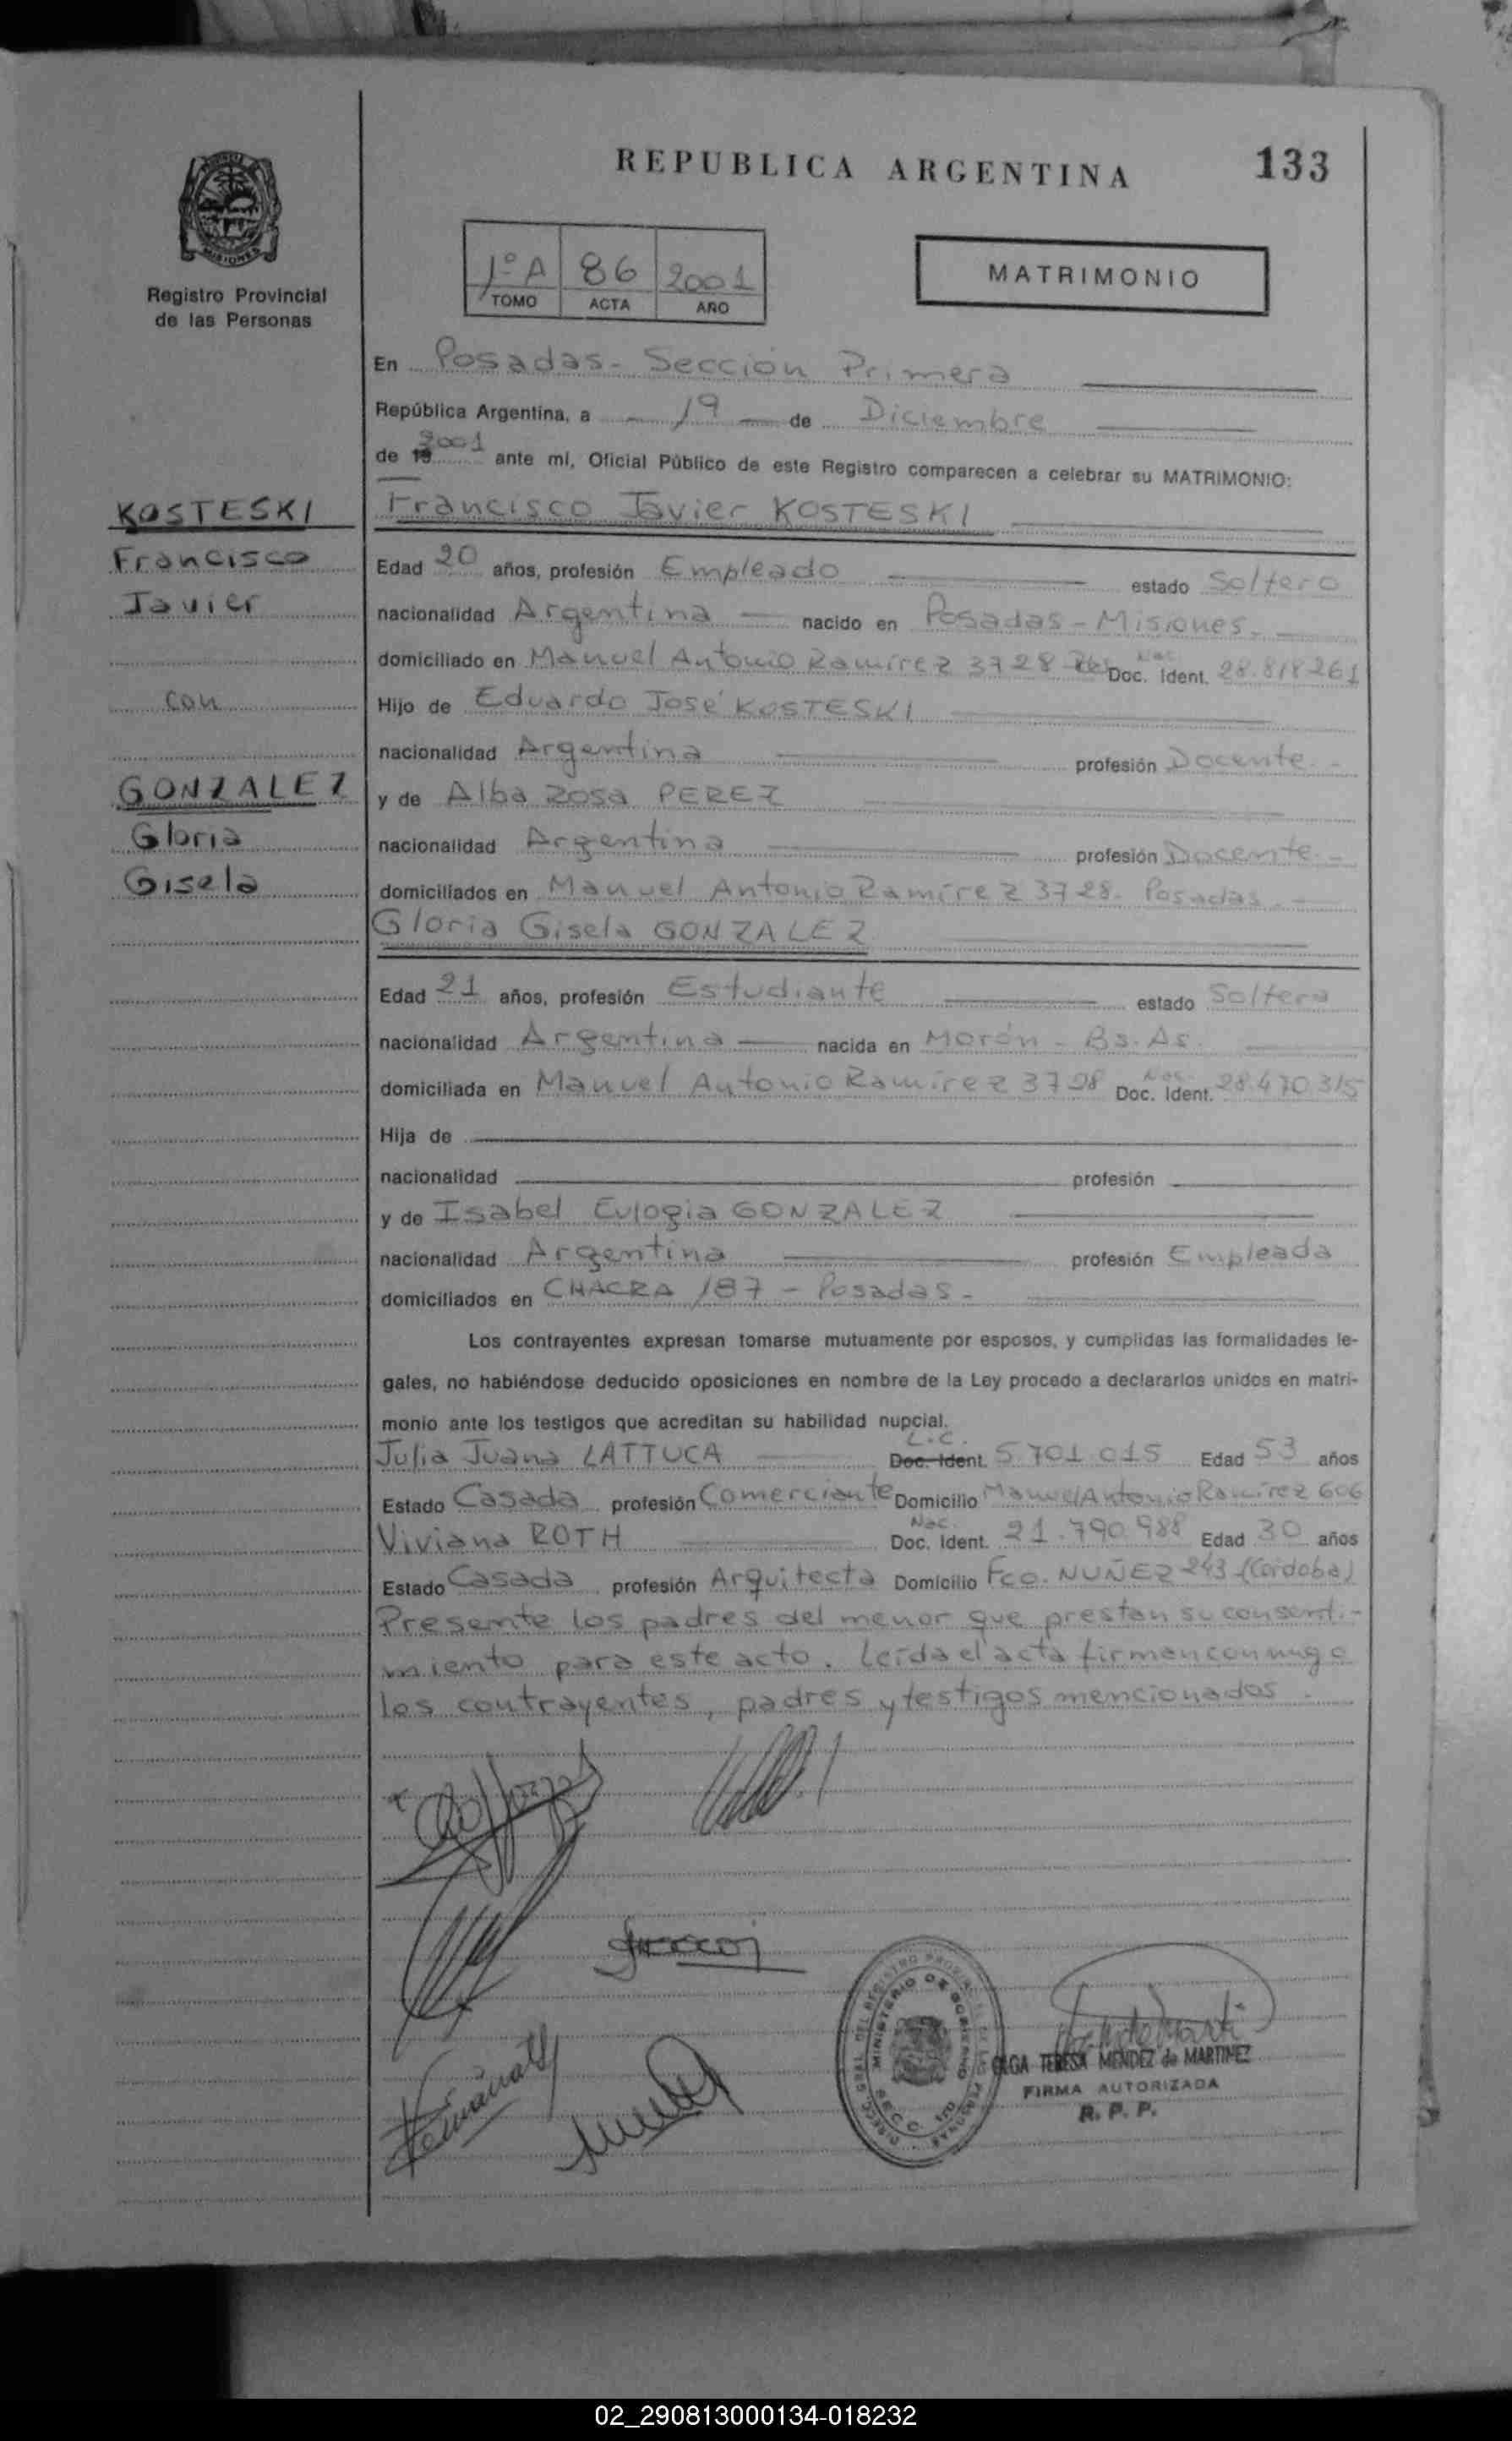 REPUBLICA ARGENTINA
133
MISIONES
Registro Provincial
de las Personas
1º A 86 2001
TOMO ACTA AÑO
MATRIMONIO
En Posadas - Sección Primera
República Argentina, a 19 de Diciembre
2001
de 19 ante mí, Oficial Público de este Registro comparecen a celebrar su MATRIMONIO:
KOSTESKI
Francisco
Javier
con
GONZALEZ
Gloria
Gisela
Francisco Javier KOSTESKI
Edad 20 años, profesión Empleado estado Soltero
nacionalidad Argentina nacido en Posadas - Misiones.
domiciliado en Manuel Antonio Ramírez 3728 Nac. Doc. Ident. 28.818261
Hijo de Eduardo José KOSTESKI
nacionalidad Argentina profesión Docente.-
y de Alba Rosa PEREZ
nacionalidad Argentina profesión Docente.-
domiciliados en Manuel Antonio Ramírez 3728. Posadas.
Gloria Gisela GONZALEZ
Edad 21 años, profesión Estudiante estado Soltera
nacionalidad Argentina nacida en Morón - Bs. As.
domiciliada en Manuel Antonio Ramírez 3728 Nac. Doc. Ident. 28.470.315
Hija de
nacionalidad profesión
y de Isabel Eulogia GONZALEZ
nacionalidad Argentina profesión Empleada
domiciliados en CHACRA 187 - Posadas -
Los contrayentes expresan tomarse mutuamente por esposos, y cumplidas las formalidades le-
gales, no habiéndose deducido oposiciones en nombre de la Ley procedo a declararlos unidos en matri-
monio ante los testigos que acreditan su habilidad nupcial.
L.C.
Julia Juana LATTUCA Doc. Ident. 5.701.015 Edad 53 años
Estado Casada profesión Comerciante Domicilio Manuel Antonio Ramírez 606
Viviana ROTH Nac. Doc. Ident. 21.790.988 Edad 30 años
Estado Casada profesión Arquitecta Domicilio Fco. NUÑEZ 243 (Córdoba)
Presente los padres del menor que prestan su consenti-
miento para este acto. Leída el acta firman conmigo
los contrayentes, padres y testigos mencionados.
MINISTERIO DE GOBIERNO
OLGA TERESA MENDEZ de MARTINEZ
FIRMA AUTORIZADA
R. P. P.
02_290813000134-018232